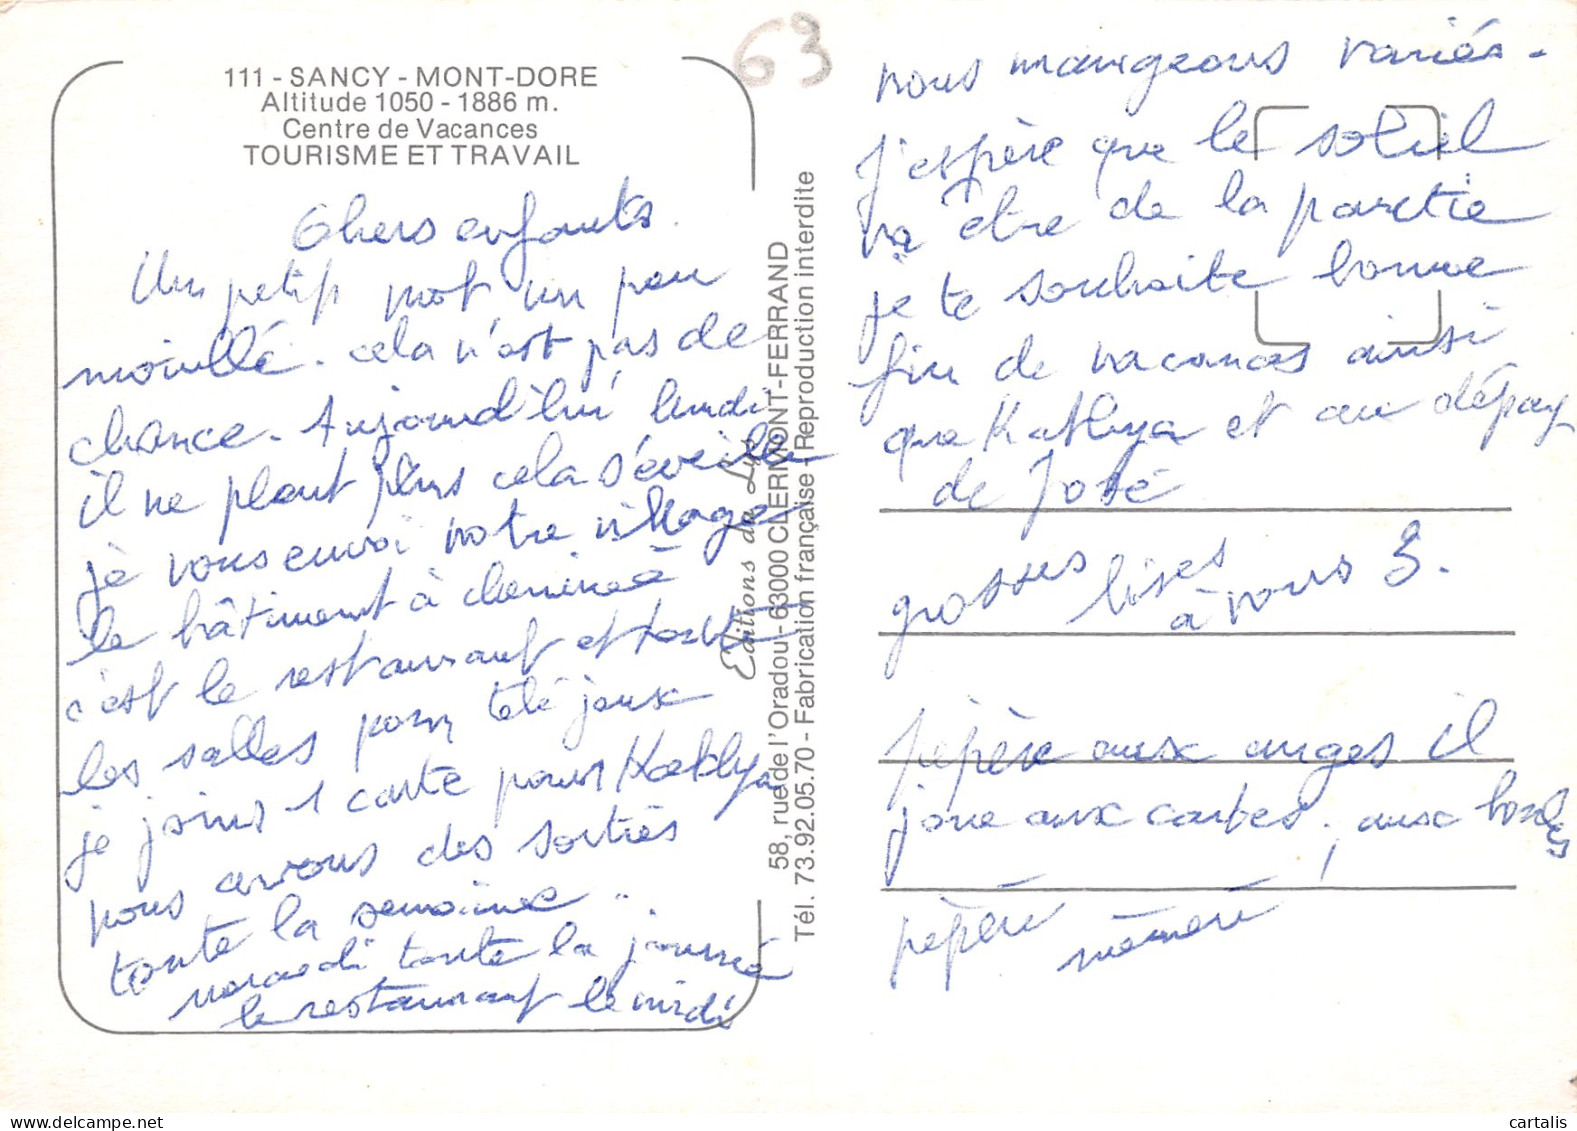 63
111 - SANCY - MONT-DORE
Altitude 1050 - 1886 m.
Centre de Vacances
TOURISME ET TRAVAIL
Chers enfants.
Un petit mot un peu
mouillé. cela n'est pas de
chance. Aujourd'hui lundi
il ne pleut plus cela s'éveille
je vous envoi notre village
le bâtiment à cheminée
c'est le restaurant et toute
les salles pour télé jeux
je joins 1 carte pour Kathya
nous avons des sorties
toute la semaine ..
mardi toute la journé
le restaurant le midi
Editions du Lys
58, rue de l'Oradou - 63000 CLERMONT-FERRAND
Tél. 73.92.05.70 - Fabrication française - Reproduction interdite
nous mangeons variés.
J'espère que le soleil
va être de la partie
je te souhaite bonne
fin de vacances ainsi
que Kathya et au dépay
de José
grosses bises
à vous 3.
pépère aux anges il
joue aux cartes, aux boules
pépère
mémère
cartalis